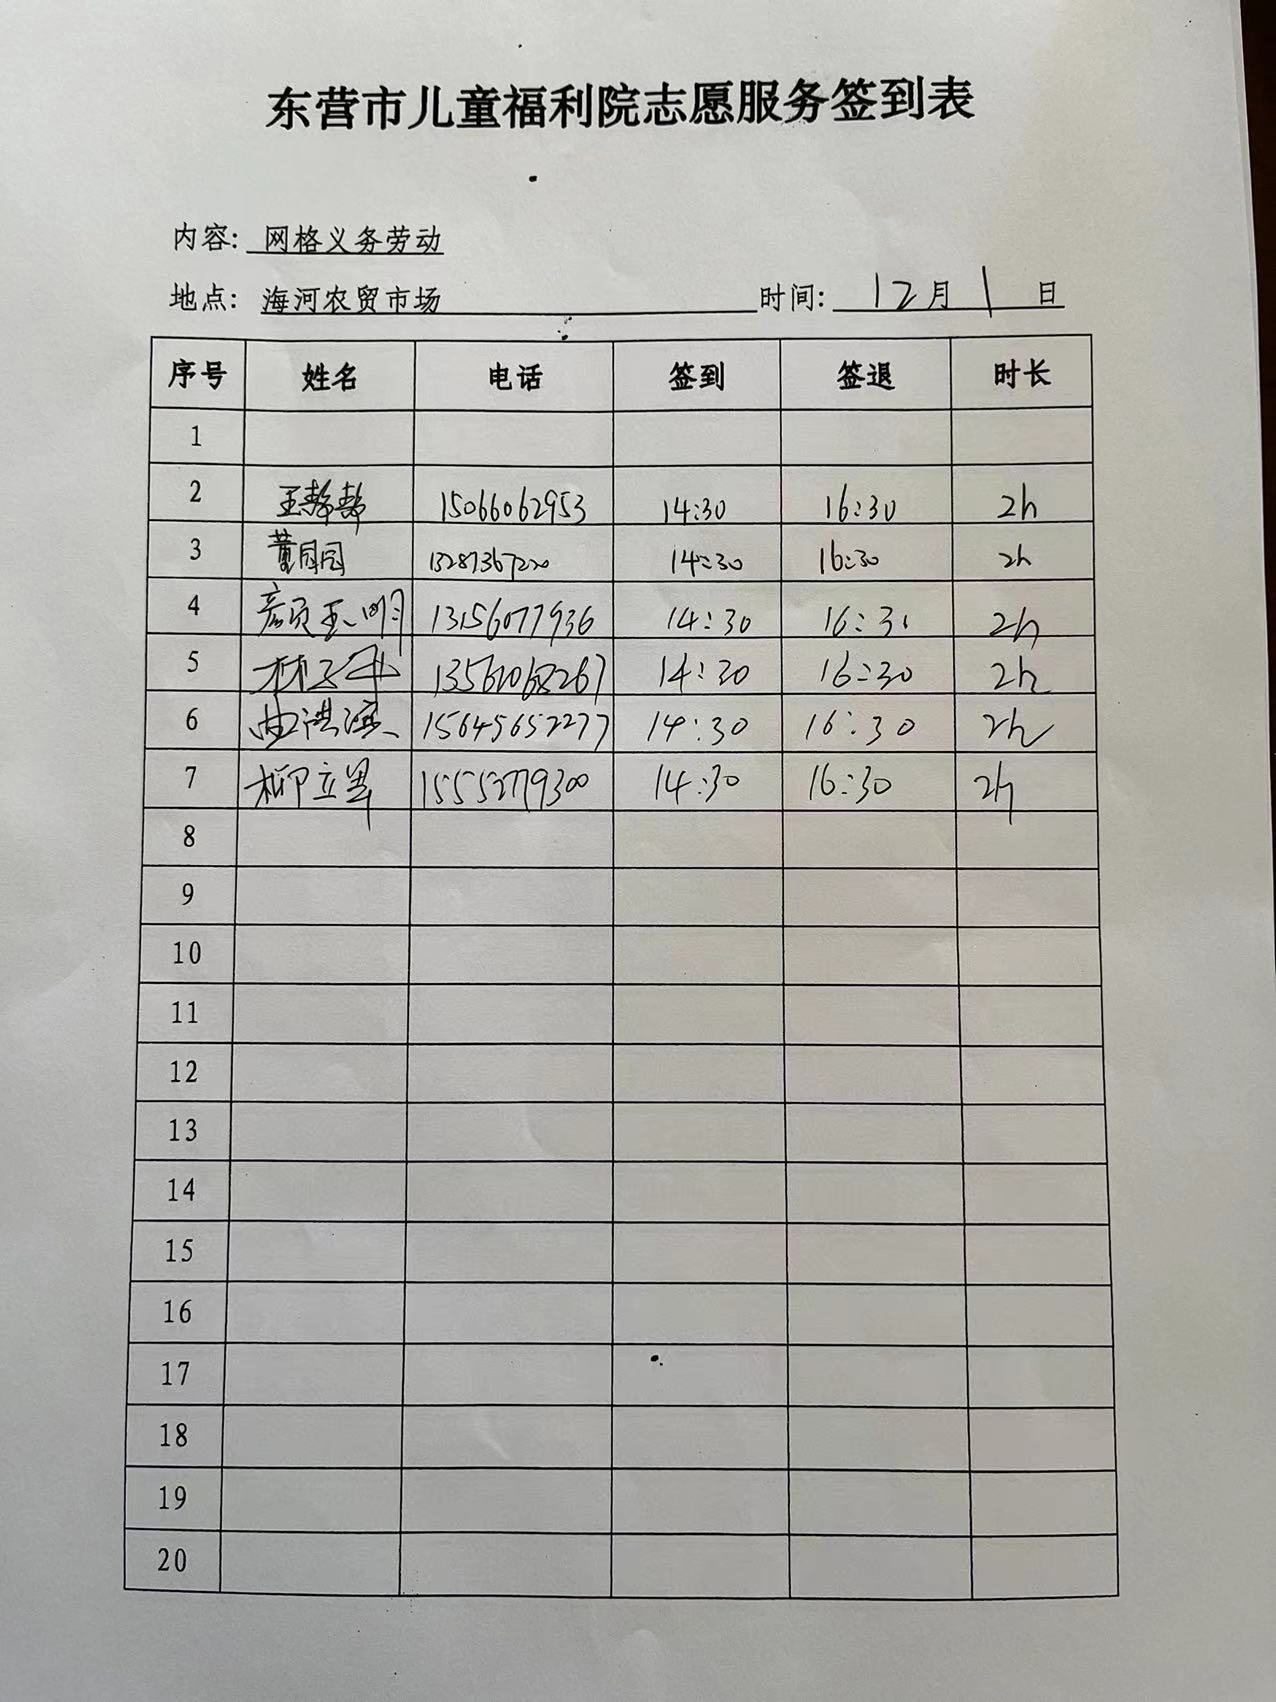 东营市儿童福利院志愿服务签到表
内容: 网格义务劳动
地点: 海河农贸市场 时间: 12月1日
序号 姓名 电话 签到 签退 时长
1
2 王静静 15066062953 14:30 16:30 2h
3 董园园 13287367220 14:30 16:30 2h
4 13156077936 14:30 16:30 2h
5 14:30 16:30 2h
6 曲洪滨 15645652277 14:30 16:30 2h
7 柳立军 15552779300 14:30 16:30 2h
8
9
10
11
12
13
14
15
16
17
18
19
20